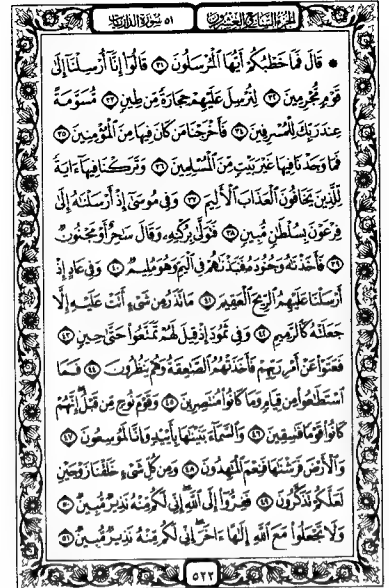 الجزء السابع والعشرون ٥١ سورة الذاريات
۞ قَالَ فَمَا خَطْبُكُمْ أَيُّهَا الْمُرْسَلُونَ ٣١ قَالُوا إِنَّا أُرْسِلْنَا إِلَىٰ
قَوْمٍ مُّجْرِمِينَ ٣٢ لِنُرْسِلَ عَلَيْهِمْ حِجَارَةً مِّن طِينٍ ٣٣ مُّسَوَّمَةً
عِندَ رَبِّكَ لِلْمُسْرِفِينَ ٣٤ فَأَخْرَجْنَا مَن كَانَ فِيهَا مِنَ الْمُؤْمِنِينَ ٣٥
فَمَا وَجَدْنَا فِيهَا غَيْرَ بَيْتٍ مِّنَ الْمُسْلِمِينَ ٣٦ وَتَرَكْنَا فِيهَا آيَةً
لِّلَّذِينَ يَخَافُونَ الْعَذَابَ الْأَلِيمَ ٣٧ وَفِي مُوسَىٰ إِذْ أَرْسَلْنَاهُ إِلَىٰ
فِرْعَوْنَ بِسُلْطَانٍ مُّبِينٍ ٣٨ فَتَوَلَّىٰ بِرُكْنِهِ وَقَالَ سَاحِرٌ أَوْ مَجْنُونٌ
٣٩ فَأَخَذْنَاهُ وَجُنُودَهُ فَنَبَذْنَاهُمْ فِي الْيَمِّ وَهُوَ مُلِيمٌ ٤٠ وَفِي عَادٍ إِذْ
أَرْسَلْنَا عَلَيْهِمُ الرِّيحَ الْعَقِيمَ ٤١ مَا تَذَرُ مِن شَيْءٍ أَتَتْ عَلَيْهِ إِلَّا
جَعَلَتْهُ كَالرَّمِيمِ ٤٢ وَفِي ثَمُودَ إِذْ قِيلَ لَهُمْ تَمَتَّعُوا حَتَّىٰ حِينٍ ٤٣
فَعَتَوْا عَنْ أَمْرِ رَبِّهِمْ فَأَخَذَتْهُمُ الصَّاعِقَةُ وَهُمْ يَنظُرُونَ ٤٤ فَمَا
اسْتَطَاعُوا مِن قِيَامٍ وَمَا كَانُوا مُنتَصِرِينَ ٤٥ وَقَوْمَ نُوحٍ مِّن قَبْلُ إِنَّهُمْ
كَانُوا قَوْمًا فَاسِقِينَ ٤٦ وَالسَّمَاءَ بَنَيْنَاهَا بِأَيْيدٍ وَإِنَّا لَمُوسِعُونَ ٤٧
وَالْأَرْضَ فَرَشْنَاهَا فَنِعْمَ الْمَاهِدُونَ ٤٨ وَمِن كُلِّ شَيْءٍ خَلَقْنَا زَوْجَيْنِ
لَعَلَّكُمْ تَذَكَّرُونَ ٤٩ فَفِرُّوا إِلَى اللَّهِ إِنِّي لَكُم مِّنْهُ نَذِيرٌ مُّبِينٌ ٥٠
وَلَا تَجْعَلُوا مَعَ اللَّهِ إِلَٰهًا آخَرَ إِنِّي لَكُم مِّنْهُ نَذِيرٌ مُّبِينٌ ٥١
٥٢٢